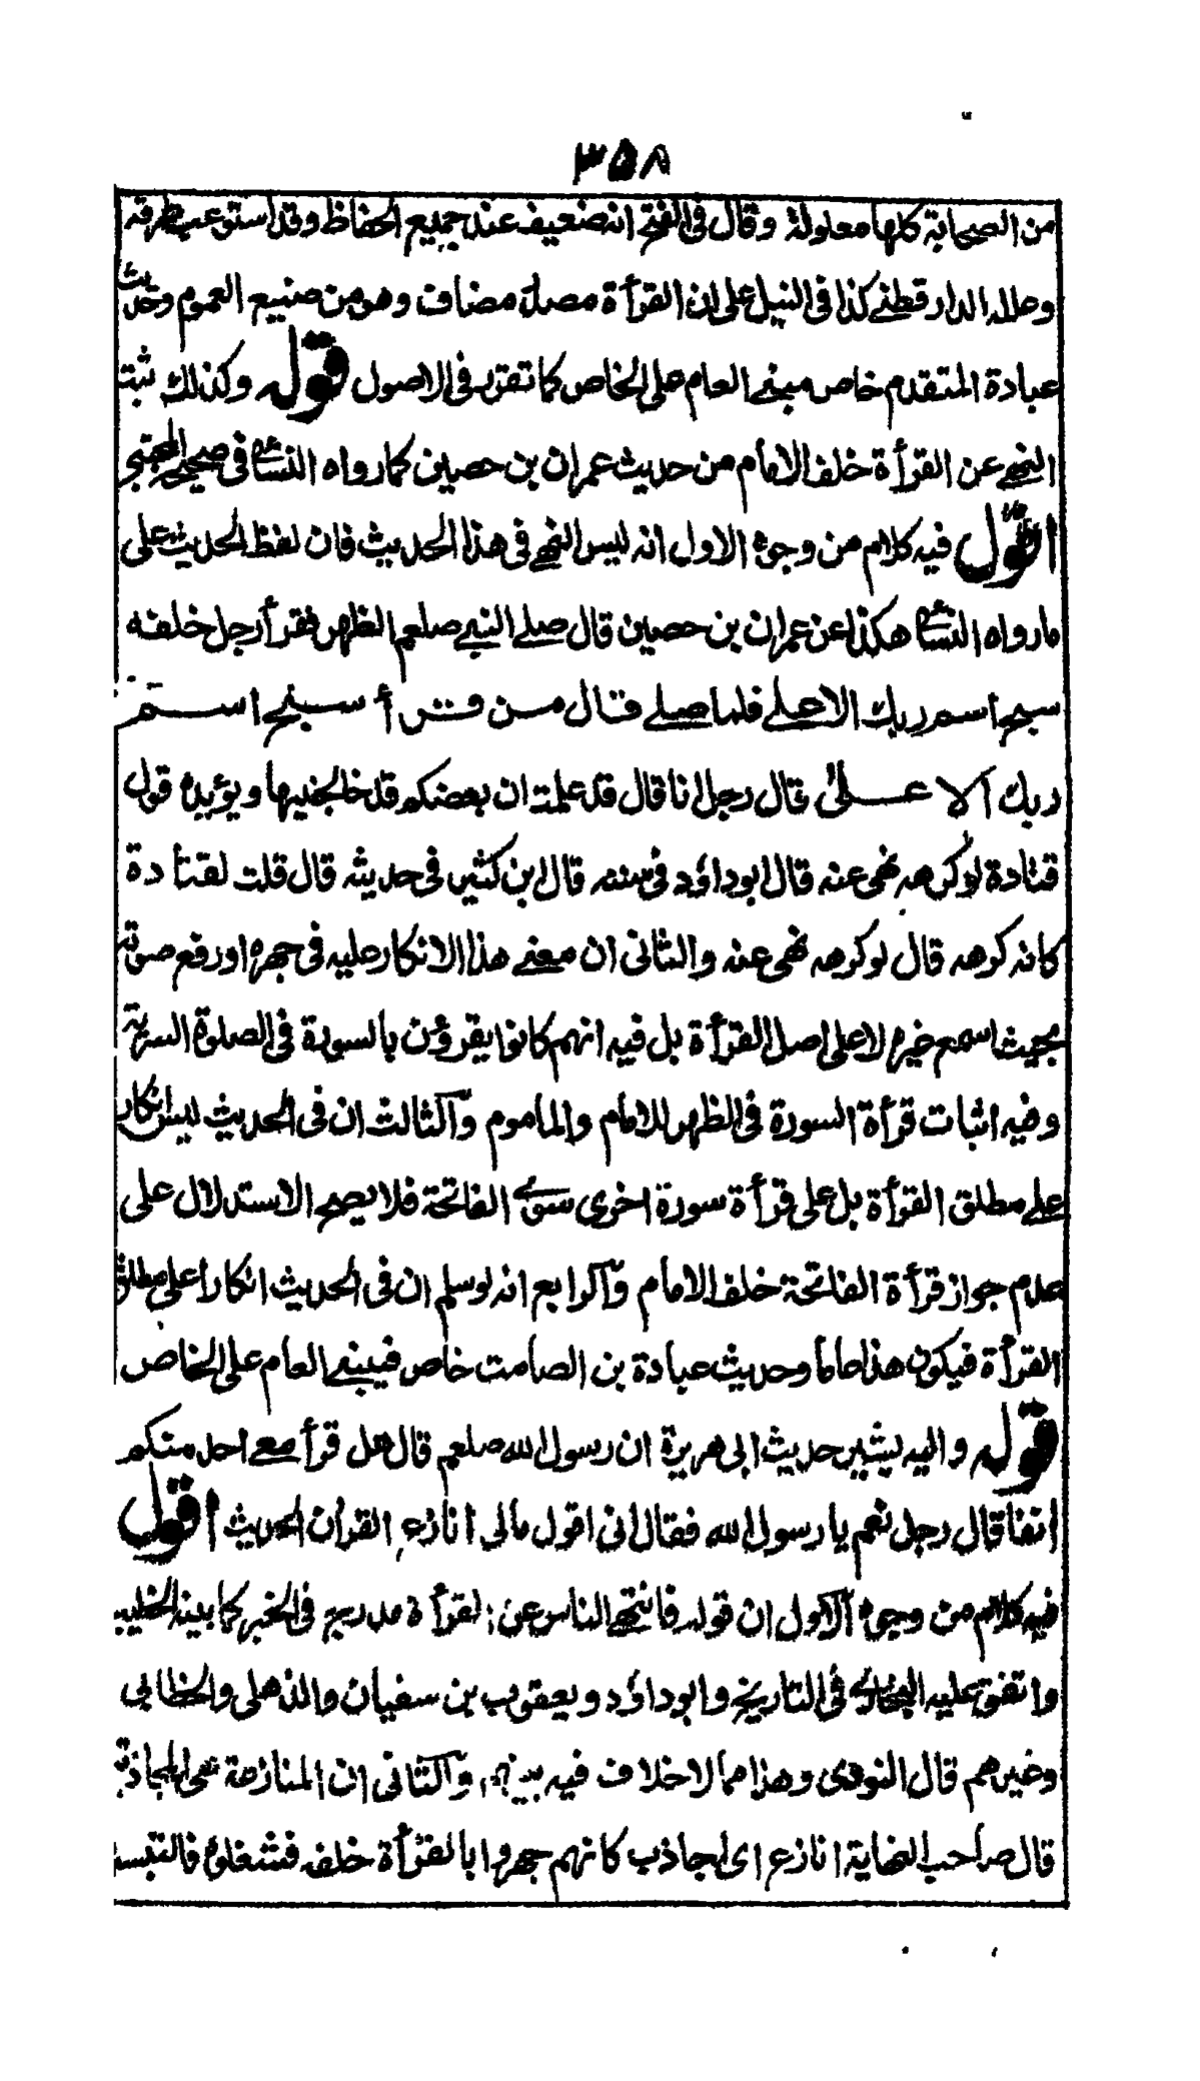 ٣٥٨
من الصحابة كلها معلولة وقال فى الفتح انه ضعيف عند جميع الحفاظ وقد استوعب طرقه
وعلله الدارقطنے كذا فى النيل على ان القرأة مصدر مضاف وهو من صنيع العموم وحديث
عبادة المتقدم خاص مبنے العام على الخاص كما تقرر فى الاصول قوله وكذلك ثبت
النهے عن القرأة خلف الامام من حديث عمران بن حصين كما رواه النسائے فى صحيحه المجتبى
اقول فيه كلام من وجوه الاول انه ليس النهے فى هذا الحديث فان لفظ الحديث على
ما رواه النسائے هكذا عن عمران بن حصين قال صلے النبے صلعم الظهر فقرأ رجل خلفه
سبح اسم ربك الاعلے فلما صلے قال من قرأ سبح اسم
ربك الاعلىٰ قال رجل انا قال قد علمت ان بعضكم قد خالجنيها ويؤيده قول
قتادة لو كرهه نهى عنه قال ابوداؤد فى سننه قال ابن كثير فى حديثه قال قلت لقتادة
كانه كرهه قال لو كرهه نهى عنه والثانى ان معنے هذا الانكار عليه فى جهره او رفع صوته
بحيث اسمع غيره لا على اصل القرأة بل فيه انهم كانوا يقرؤن بالسورة فى الصلوة السرية
وفيه اثبات قرأة السورة فى الظهر للامام والماموم والثالث ان فى الحديث ليس انكار
علے مطلق القرأة بل على قرأة سورة اخرى سوے الفاتحة فلا يصح الاستدلال على
عدم جواز قرأة الفاتحة خلف الامام والرابع انه لو سلم ان فى الحديث انكارا على مطلق
القرأة فيكون هذا عاما وحديث عبادة بن الصامت خاص فيبنے العام على الخاص
قوله واليه يشير حديث ابى هريرة ان رسول الله صلعم قال هل قرأ معے احد منكم
انفا قال رجل نعم يا رسول الله فقال انى اقول مالى انازع القرأن الحديث اقول
فيه كلام من وجوه الاول ان قوله فانتهے الناس عن القرأة مدرج فى الخبر كما بينه الخطيب
واتفق عليه البخارے فى التاريخ وابوداؤد ويعقوب بن سفيان والذهلى والخطابى
وغيرهم قال النووى وهذا مما لاخلاف فيه بينهم والثانى ان المنازعة هى المجاذبة
قال صاحب النهاية انازع اى اجاذب كانهم جهروا بالقرأة خلفه فشغلوه فالتبست